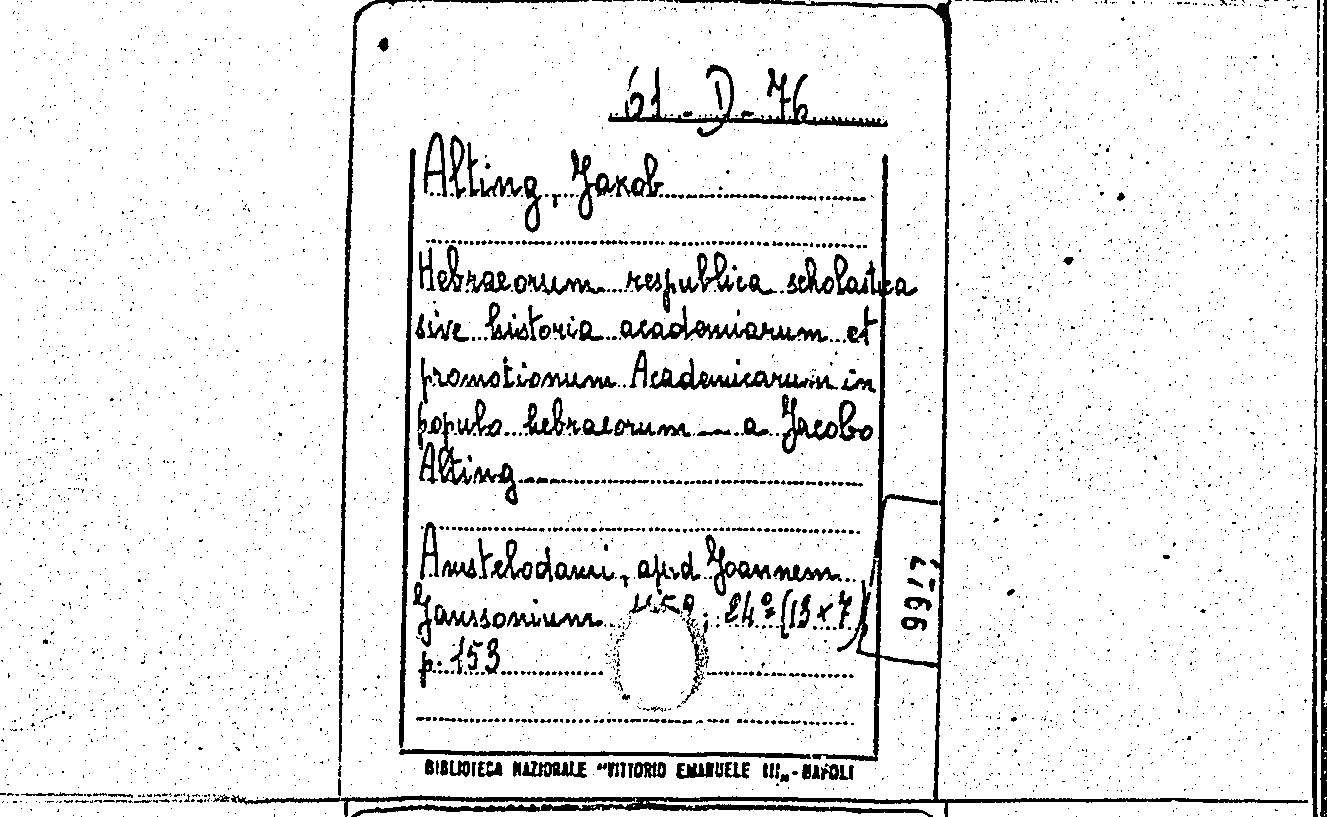 61-D-76
Alting, Jakob
Hebraeorum respublica scholastica
sive historia academiarum et
promotionum Academicarum in
populo hebraeorum — a Jacobo
Alting
Amstelodami, apud Joannem
Janssonium ; 24° (13x7)
p. 153
BIBLIOTECA NAZIONALE "VITTORIO EMANUELE III„ - NAPOLI